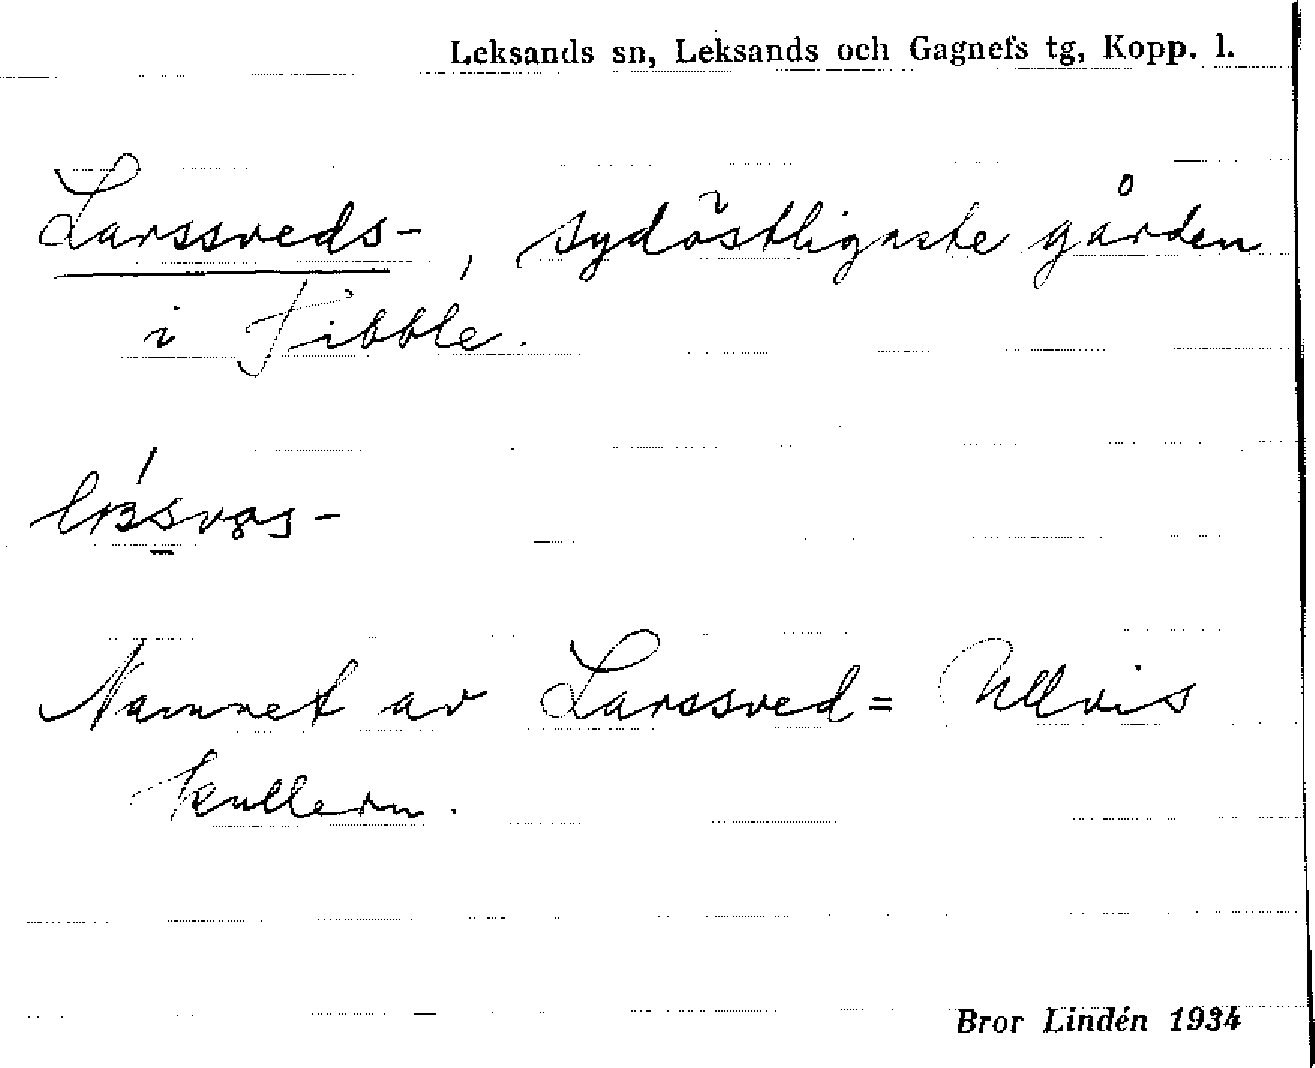 Leksands sn, Leksands och Gagnefs tg, Kopp. l.
Larssveds-, sydöstligaste gården
i Tibble.
Namnet av Larssved = Ullvis
kullern.
Bror Lindén 1934